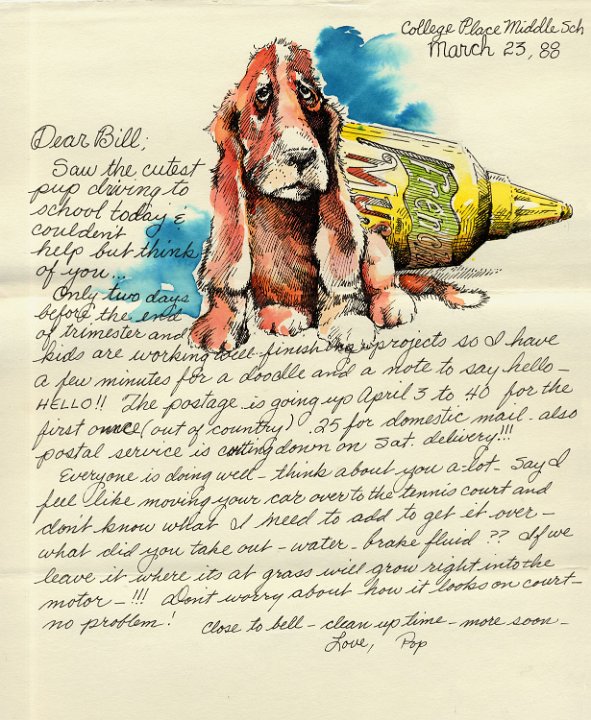 College Place Middle Sch
March 23, 88
Dear Bill;
Saw the cutest
pup driving to
school today &
couldn't
help but think
of you...
Only two days
before the end
of trimester and
kids are working well finishing projects so I have
a few minutes for a doodle and a note to say hello-
HELLO!! The postage is going up April 3 to 40 for the
first ounce (out of country) .25 for domestic mail - also
postal service is cutting down on Sat. delivery!!!
Everyone is doing well - think about you a-lot - Say I
feel like moving your car over to the tennis court and
don't know what I need to add to get it over -
what did you take out - water - brake fluid ?? If we
leave it where its at grass will grow right into the
motor - !!! Don't worry about how it looks on court -
no problem!
close to bell - clean up time - more soon -
Love, Pop
French's
Mu